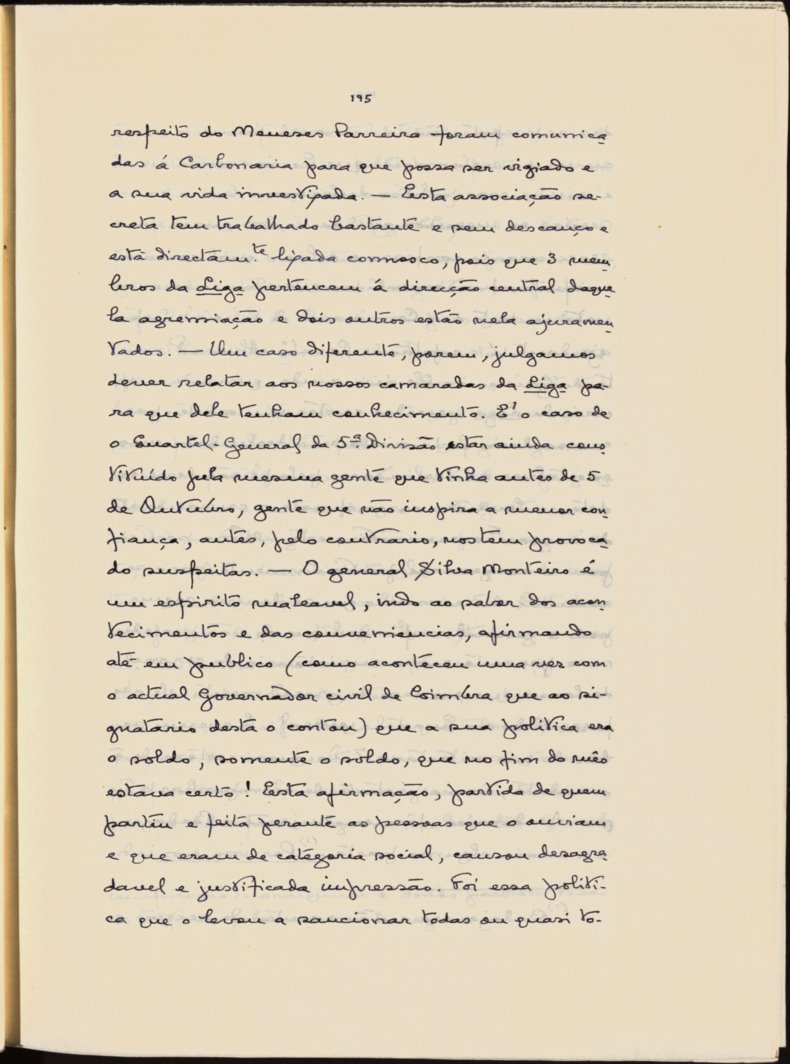 195
respeito do Meneses Parreira foram comunica
das á Carbonaria para que possa ser vigiado e
a sua vida investigada. — Esta associação se-
creta tem trabalhado bastante e sem descanço e
está directam.te ligada comnosco, pois que 3 mem
bros da Liga pertencem á direcção central daque
la agremiação e dois outros estão nela ajuramen
tados. — Um caso diferente, porem, julgamos
dever relatar aos nossos camaradas da Liga pa-
ra que dele tenham conhecimento. E' o caso de
o Quartel-General da 5ª. Divisão estar ainda cons
tituído pela mesma gente que tinha antes de 5
de Outubro, gente que não inspira a menor con
fiança, antes, pelo contrario, nos tem provoca
do suspeitas. — O general Silva Monteiro é
um espirito maleavel, indo ao sabor dos acon
tecimentos e das conveniencias, afirmando
até em publico (como aconteceu uma vez com
o actual Governador civil de Coimbra que ao si-
gnatario desta o contou) que a sua politica era
o soldo, somente o soldo, que no fim do mês
estava certo! Esta afirmação, partida de quem
partiu e feita perante as pessoas que o ouviam
e que eram de categoria social, causou desagra
davel e justificada impressão. Foi essa politi-
ca que o levou a sancionar todas ou quasi to-